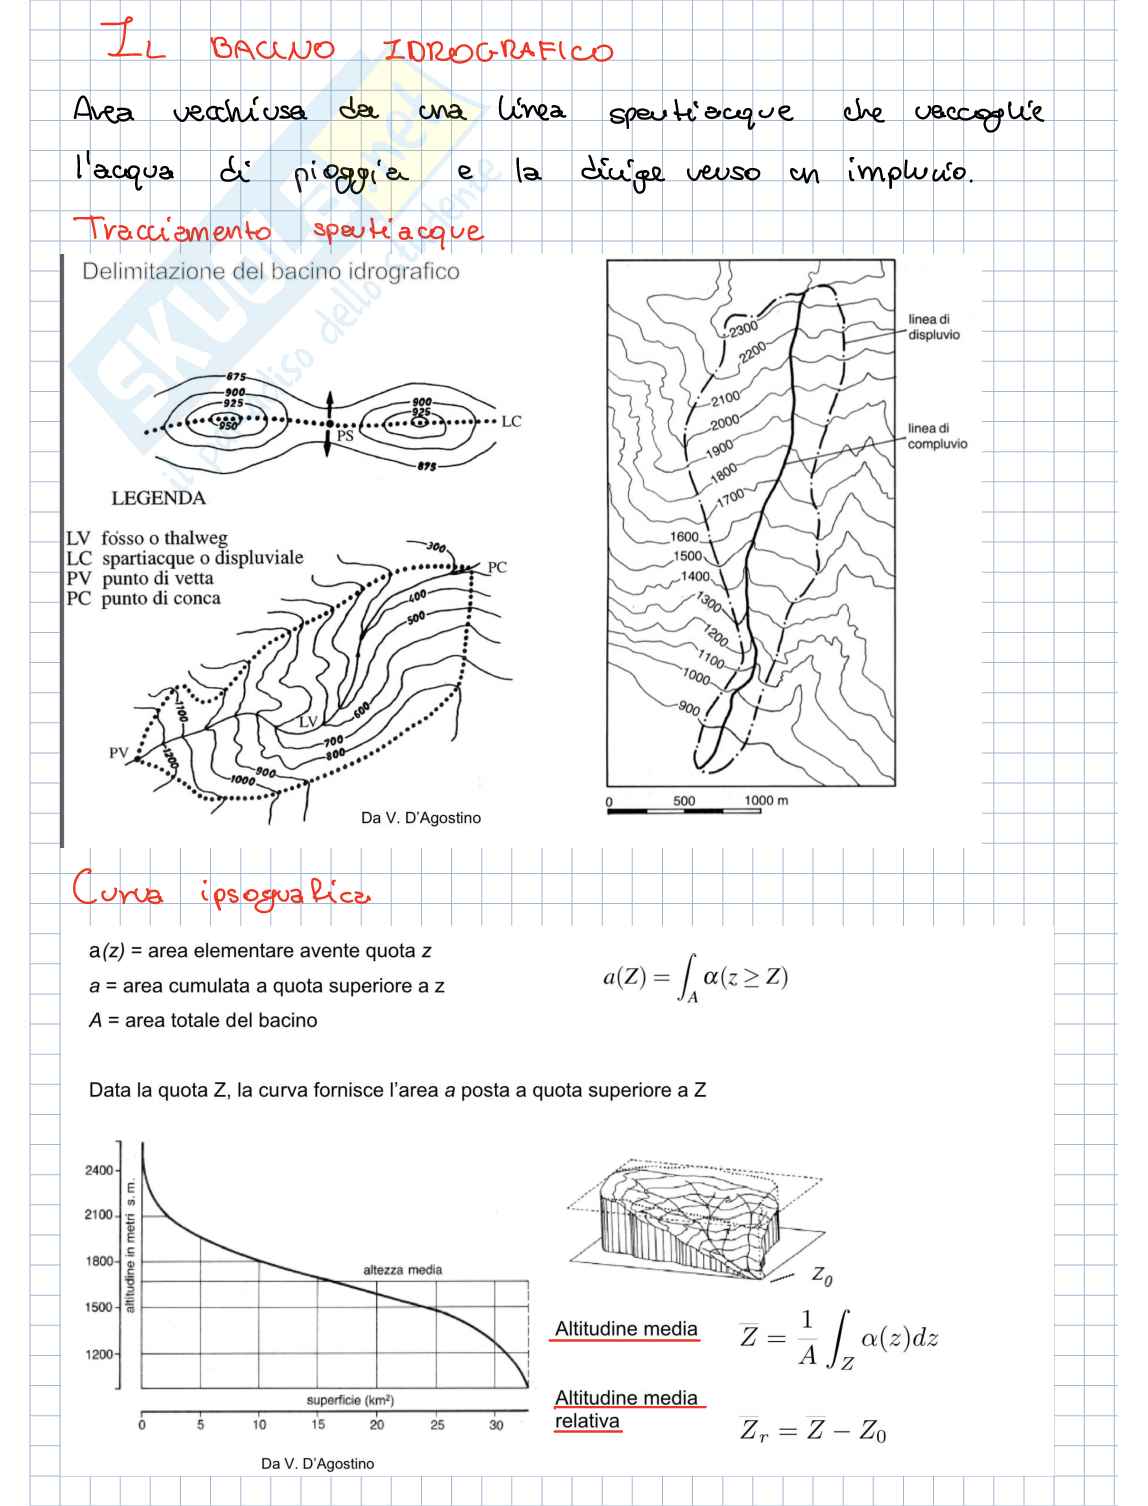 IL BACINO IDROGRAFICO
Area racchiusa da una linea spartiacque che raccoglie
l'acqua di pioggia e la dirige verso un impluvio.
Tracciamento spartiacque
Delimitazione del bacino idrografico
875
900
925
950
PS
900
925
LC
875
LEGENDA
LV fosso o thalweg
LC spartiacque o displuviale
PV punto di vetta
PC punto di conca
300
PC
400
500
600
LV
700
800
900
1000
1100
1200
PV
Da V. D'Agostino
2300
2200
2100
2000
1900
1800
1700
1600
1500
1400
1300
1200
1100
1000
900
linea di
displuvio
linea di
compluvio
0 500 1000 m
Curva ipsografica
a(z) = area elementare avente quota z
a = area cumulata a quota superiore a z
A = area totale del bacino
a(Z) = ∫_A α(z ≥ Z)
Data la quota Z, la curva fornisce l'area a posta a quota superiore a Z
altitudine in metri s.m.
2400
2100
1800
1500
1200
altezza media
superficie (km²)
0 5 10 15 20 25 30
Da V. D'Agostino
Z₀
Altitudine media
Z̅ = 1/A ∫_Z α(z)dz
Altitudine media
relativa
Z̅ᵣ = Z̅ − Z₀
SKUOLA.net
il paradiso dello studente